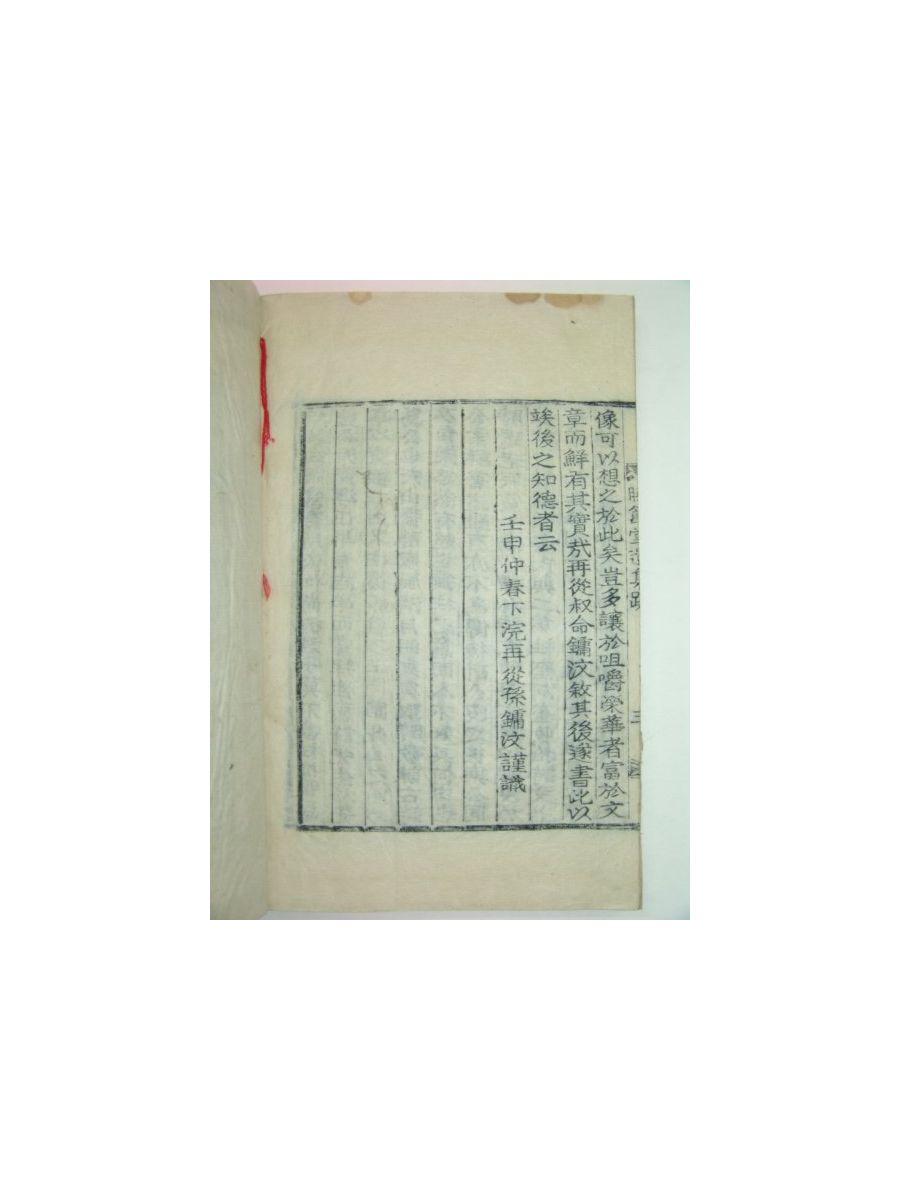 像可以想之於此矣豈多讓於咀嚼榮華者富於文
章而鮮有其實㦲再從叔命鏞汶敘其後遂書此以
竢後之知德者云
壬申仲春下浣再從孫鏞汶謹識